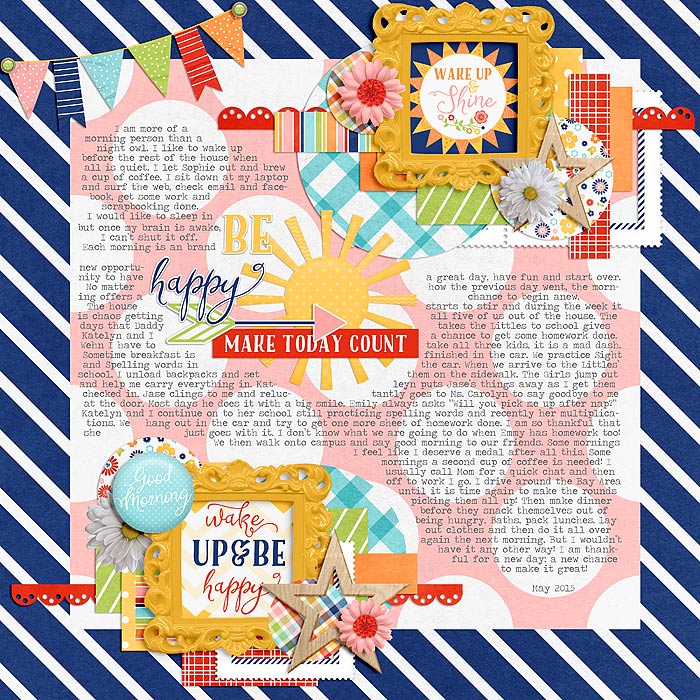 WAKE UP
&
Shine
I am more of a
morning person than a
night owl. I like to wake up
before the rest of the house when
all is quiet. I let Sophie out and brew
a cup of coffee. I sit down at my laptop
and surf the web, check email and face-
book, get some work and
scrapbooking done.
I would like to sleep in
but once my brain is awake,
I can't shut it off.
Each morning is an brand
BE
happy
MAKE TODAY COUNT
new opportu-
nity to have a great day, have fun and start over.
No matter how the previous day went, the morn-
ing offers a chance to begin anew.
The house starts to stir and during the week it
is chaos getting all five of us out of the house. The
days that Daddy takes the Littles to school gives
Katelyn and I a chance to get some homework done.
Wehn I have to take all three kids, it is a mad dash.
Sometime breakfast is finished in the car. We practice Sight
and Spelling words in the car. When we arrive to the Littles'
school. I unload backpacks and set them on the sidewalk. The Girls jump out
and help me carry everything in. Kat leyn puts Jase's things away as I get them
checked in. Jase clings to me and reluc- tantly goes to Ms. Carolyn to say goodbye to me
at the door. Most days he does it with a big smile. Emily always asks "Will you pick me up after nap?"
Katelyn and I continue on to her school still practicing spelling words and recently her multiplica-
tions. We hang out in the car and try to get one more sheet of homework done. I am so thankful that
she just goes with it. I don't know what we are going to do when Emmy has homework too!
We then walk onto campus and say good morning to our friends. Some mornings
I feel like I deserve a medal after all this. Some
mornings a second cup of coffee is needed! I
usually call Mom for a quick chat and then
off to work I go. I drive around the Bay Area
until it is time again to make the rounds
picking them all up! Then make dinner
before they snack themselves out of
being hungry. Baths, pack lunches, lay
out clothes and then do it all over
again the next morning. But I wouldn't
have it any other way! I am thank-
ful for a new day; a new chance
to make it great!
May 2015
Good
Morning
wake
UP&BE
happy